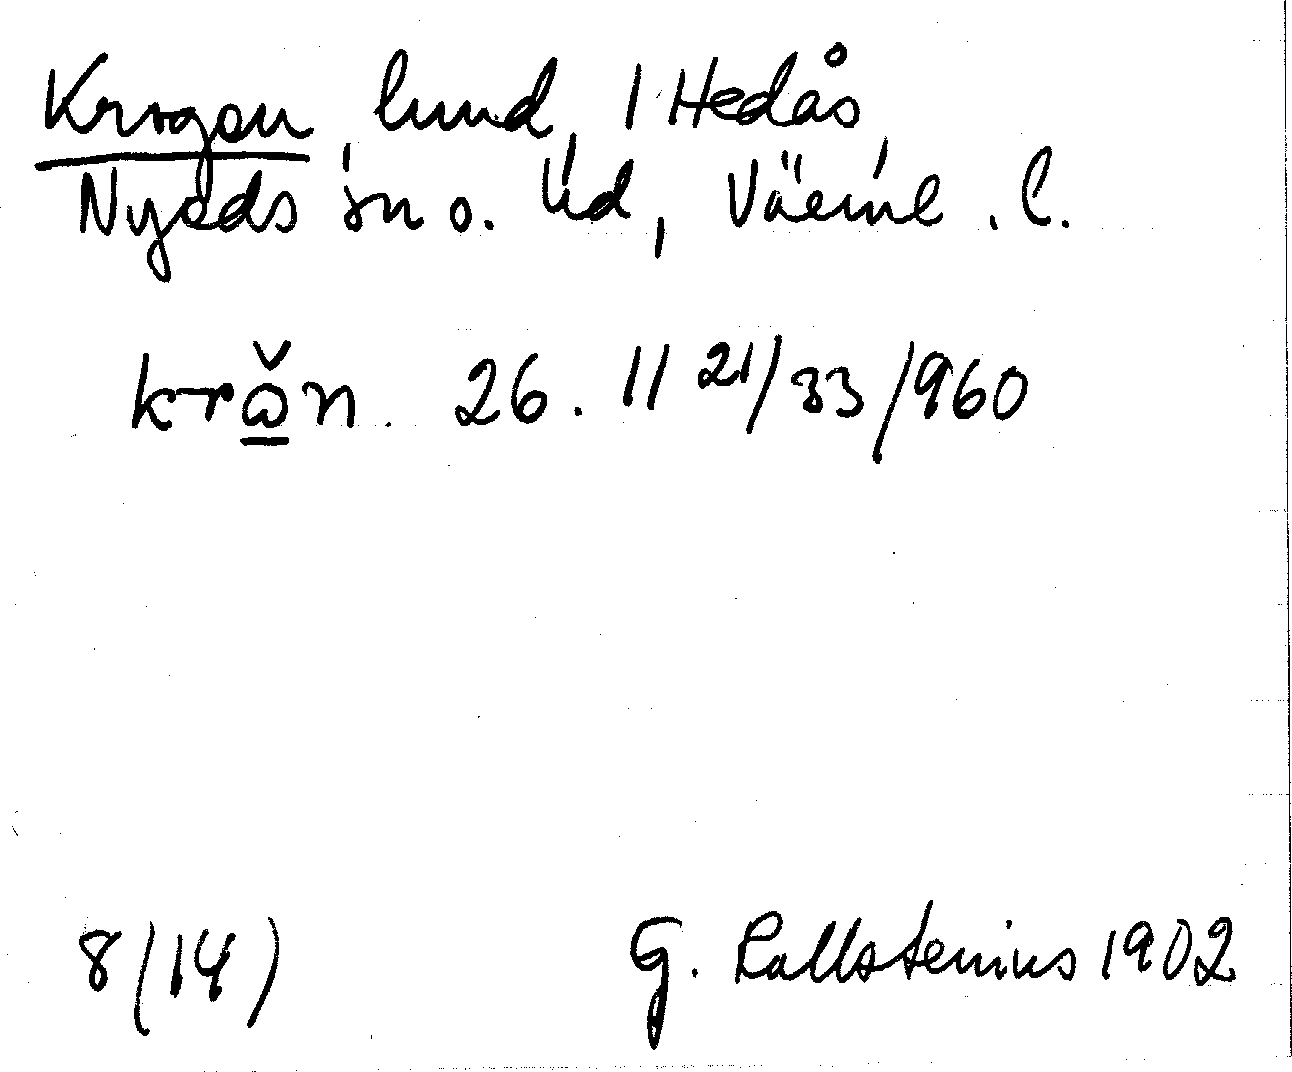 Krogen, lund, 1 Hedås,
Nyeds sn o. Hd, Värml. l.
krǎ̱n. 26. 11 21/33/960
8(14) G. Kallstenius 1902